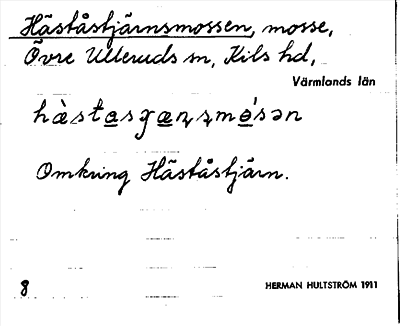 Häståstjärnsmossen, mosse,
Övre Ulleruds sn, Kils hd,
Värmlands län
Omkring Häståstjärn.
8
HERMAN HULTSTRÖM 1911